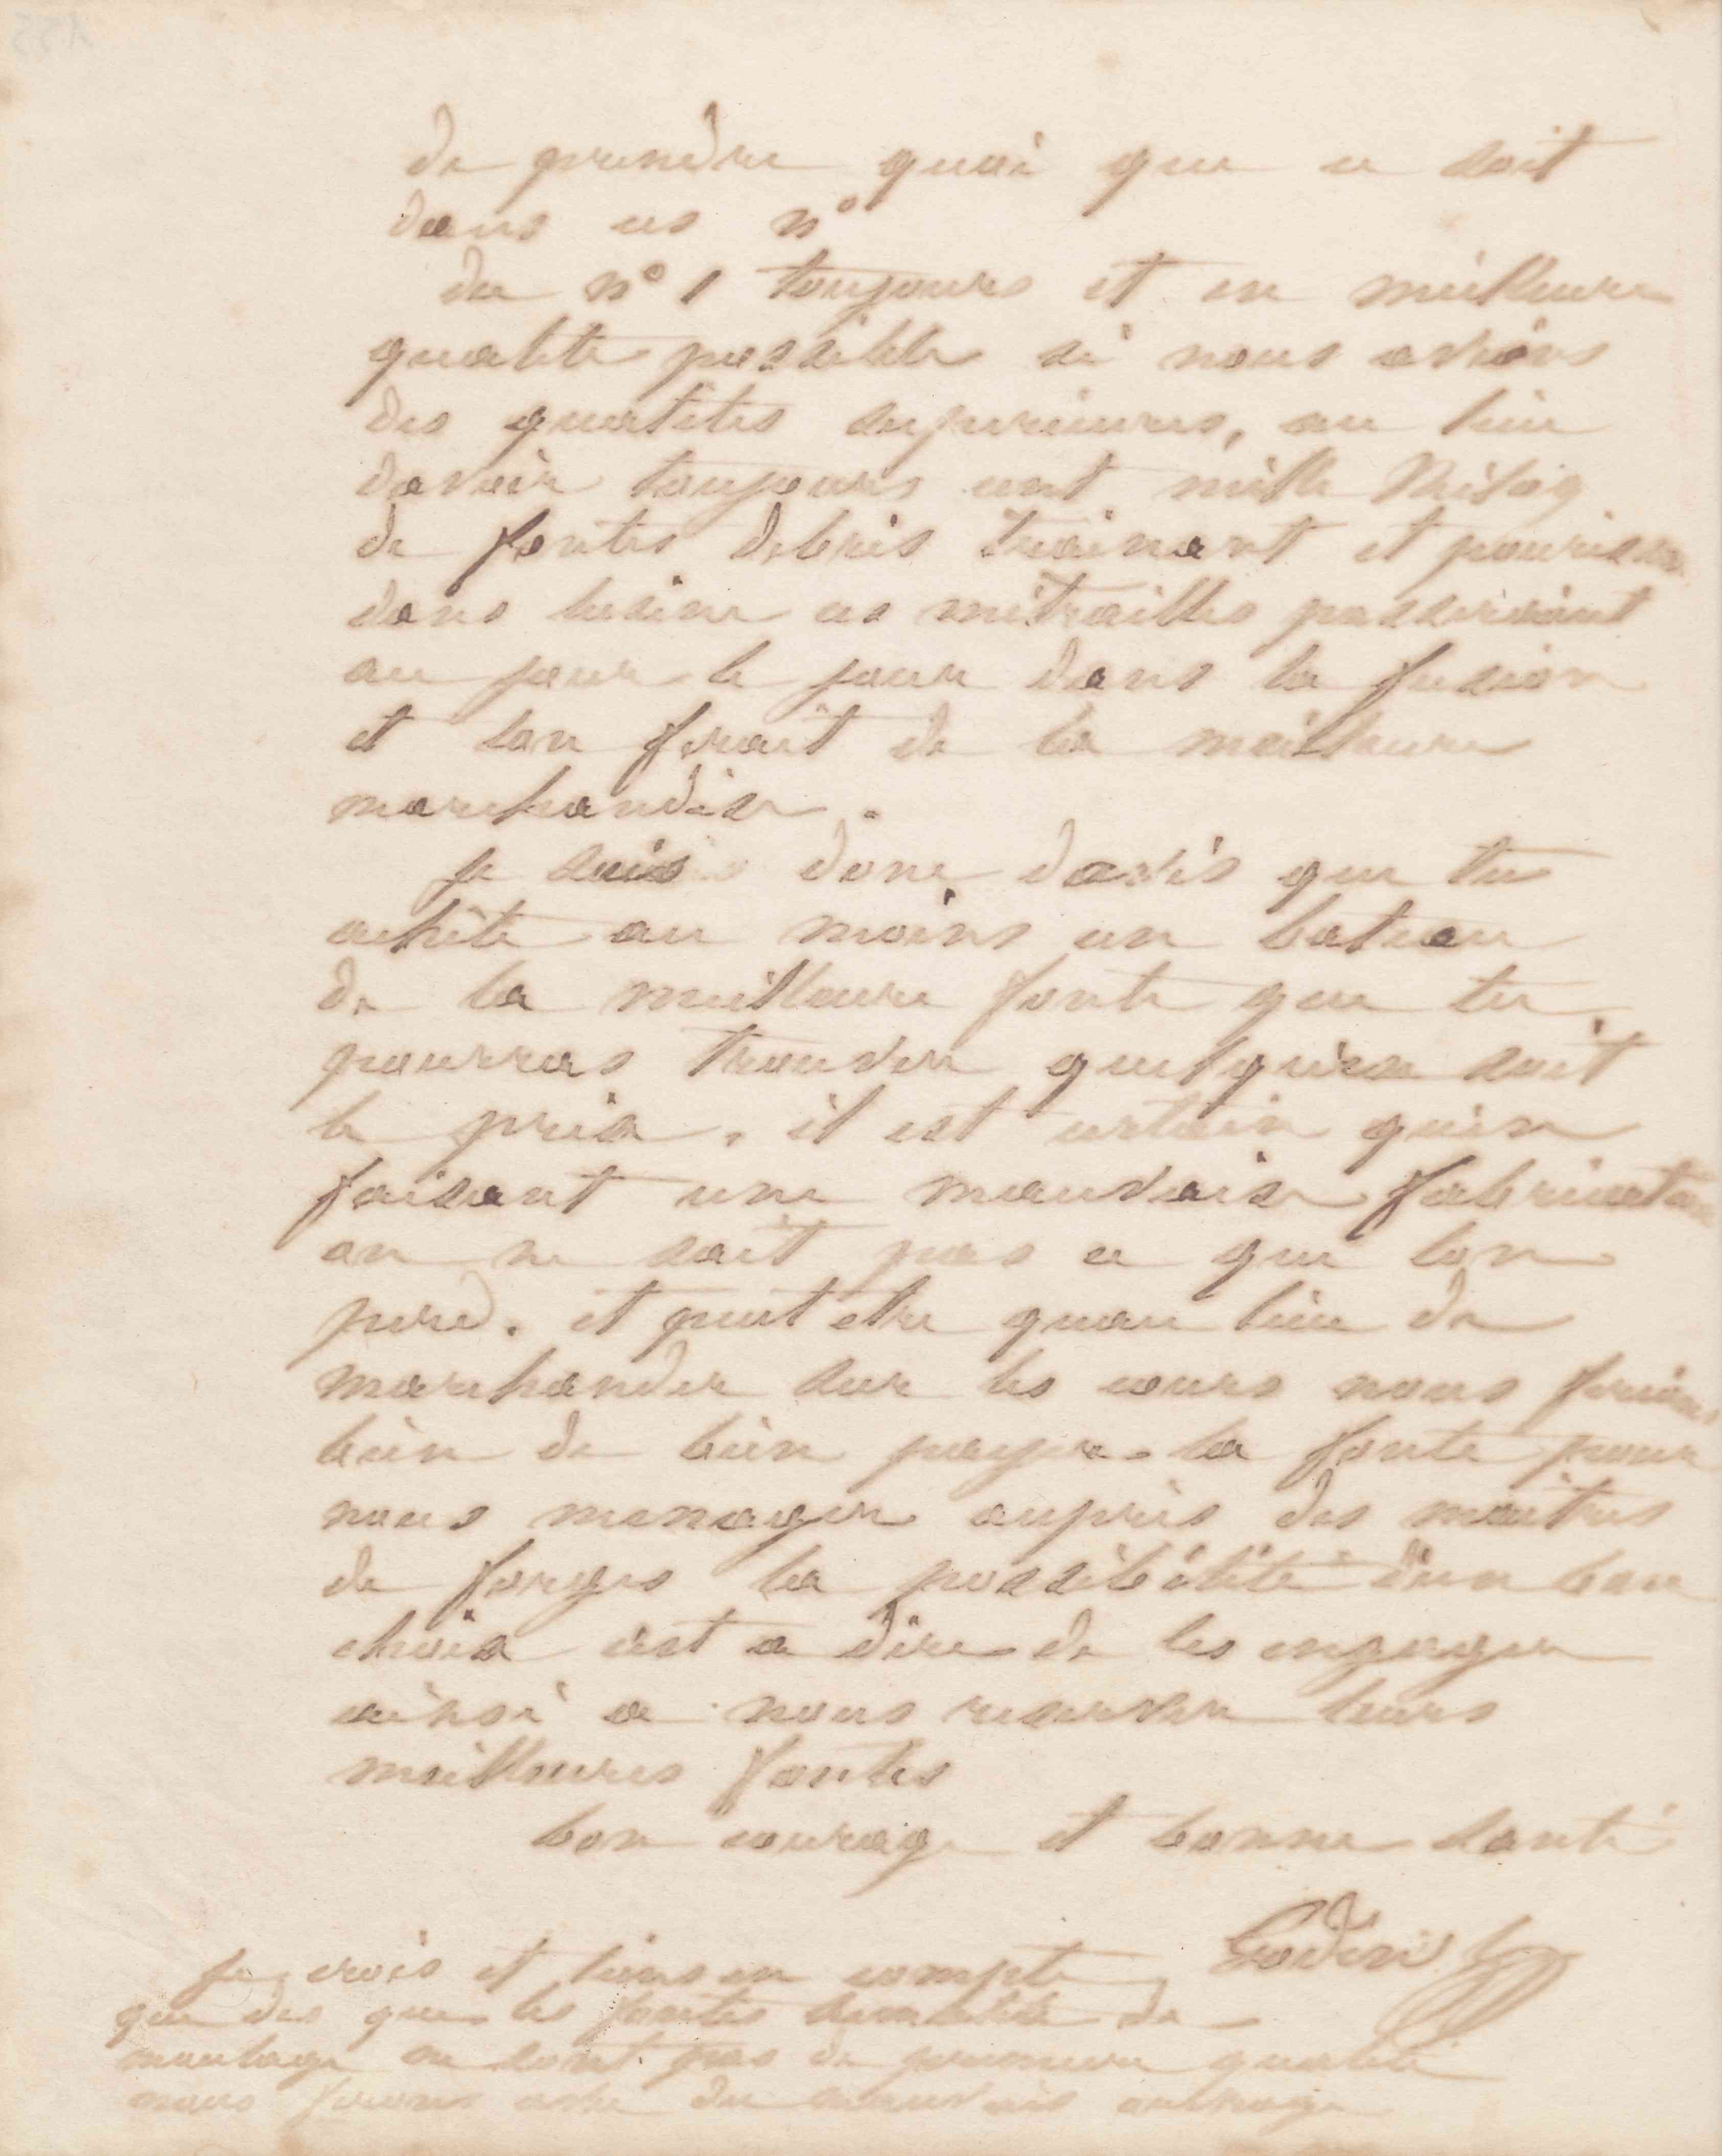 de prendre quoi que ce soit
dans ces n°
du n° 1 toujours et en meilleure
qualite possible si nous avions
des qualites superieures, au lieu
davoir toujours cent mille
de fontes debris trainant et pourissant
dans lusine ces mitrailles passeraient
au jour le jour dans la fusion
et lon ferait de la meilleure
marchandise.
je suis donc davis que tu
achète au moins un bateau
de la meilleure fonte que tu
pourras trouver quelquen soit
le prix. il est certain quen
faisant une mauvaise fabrication
on ne sait pas ce que lon
perd. et peut etre quau lieu de
marchander sur les cours nous ferions
bien de bien payer la fonte pour
nous menager auprès des maitres
de forges la possibilité dun bon
choix cest a dire de les engager
ainsi a nous reserver leurs
meilleures fontes
bon courage et bonne santé
Godin
je crois et tiens en compte
que des que les fontes de
moulage ne sont pas de premiere qualité
nous ferons avec du mauvais ouvrage